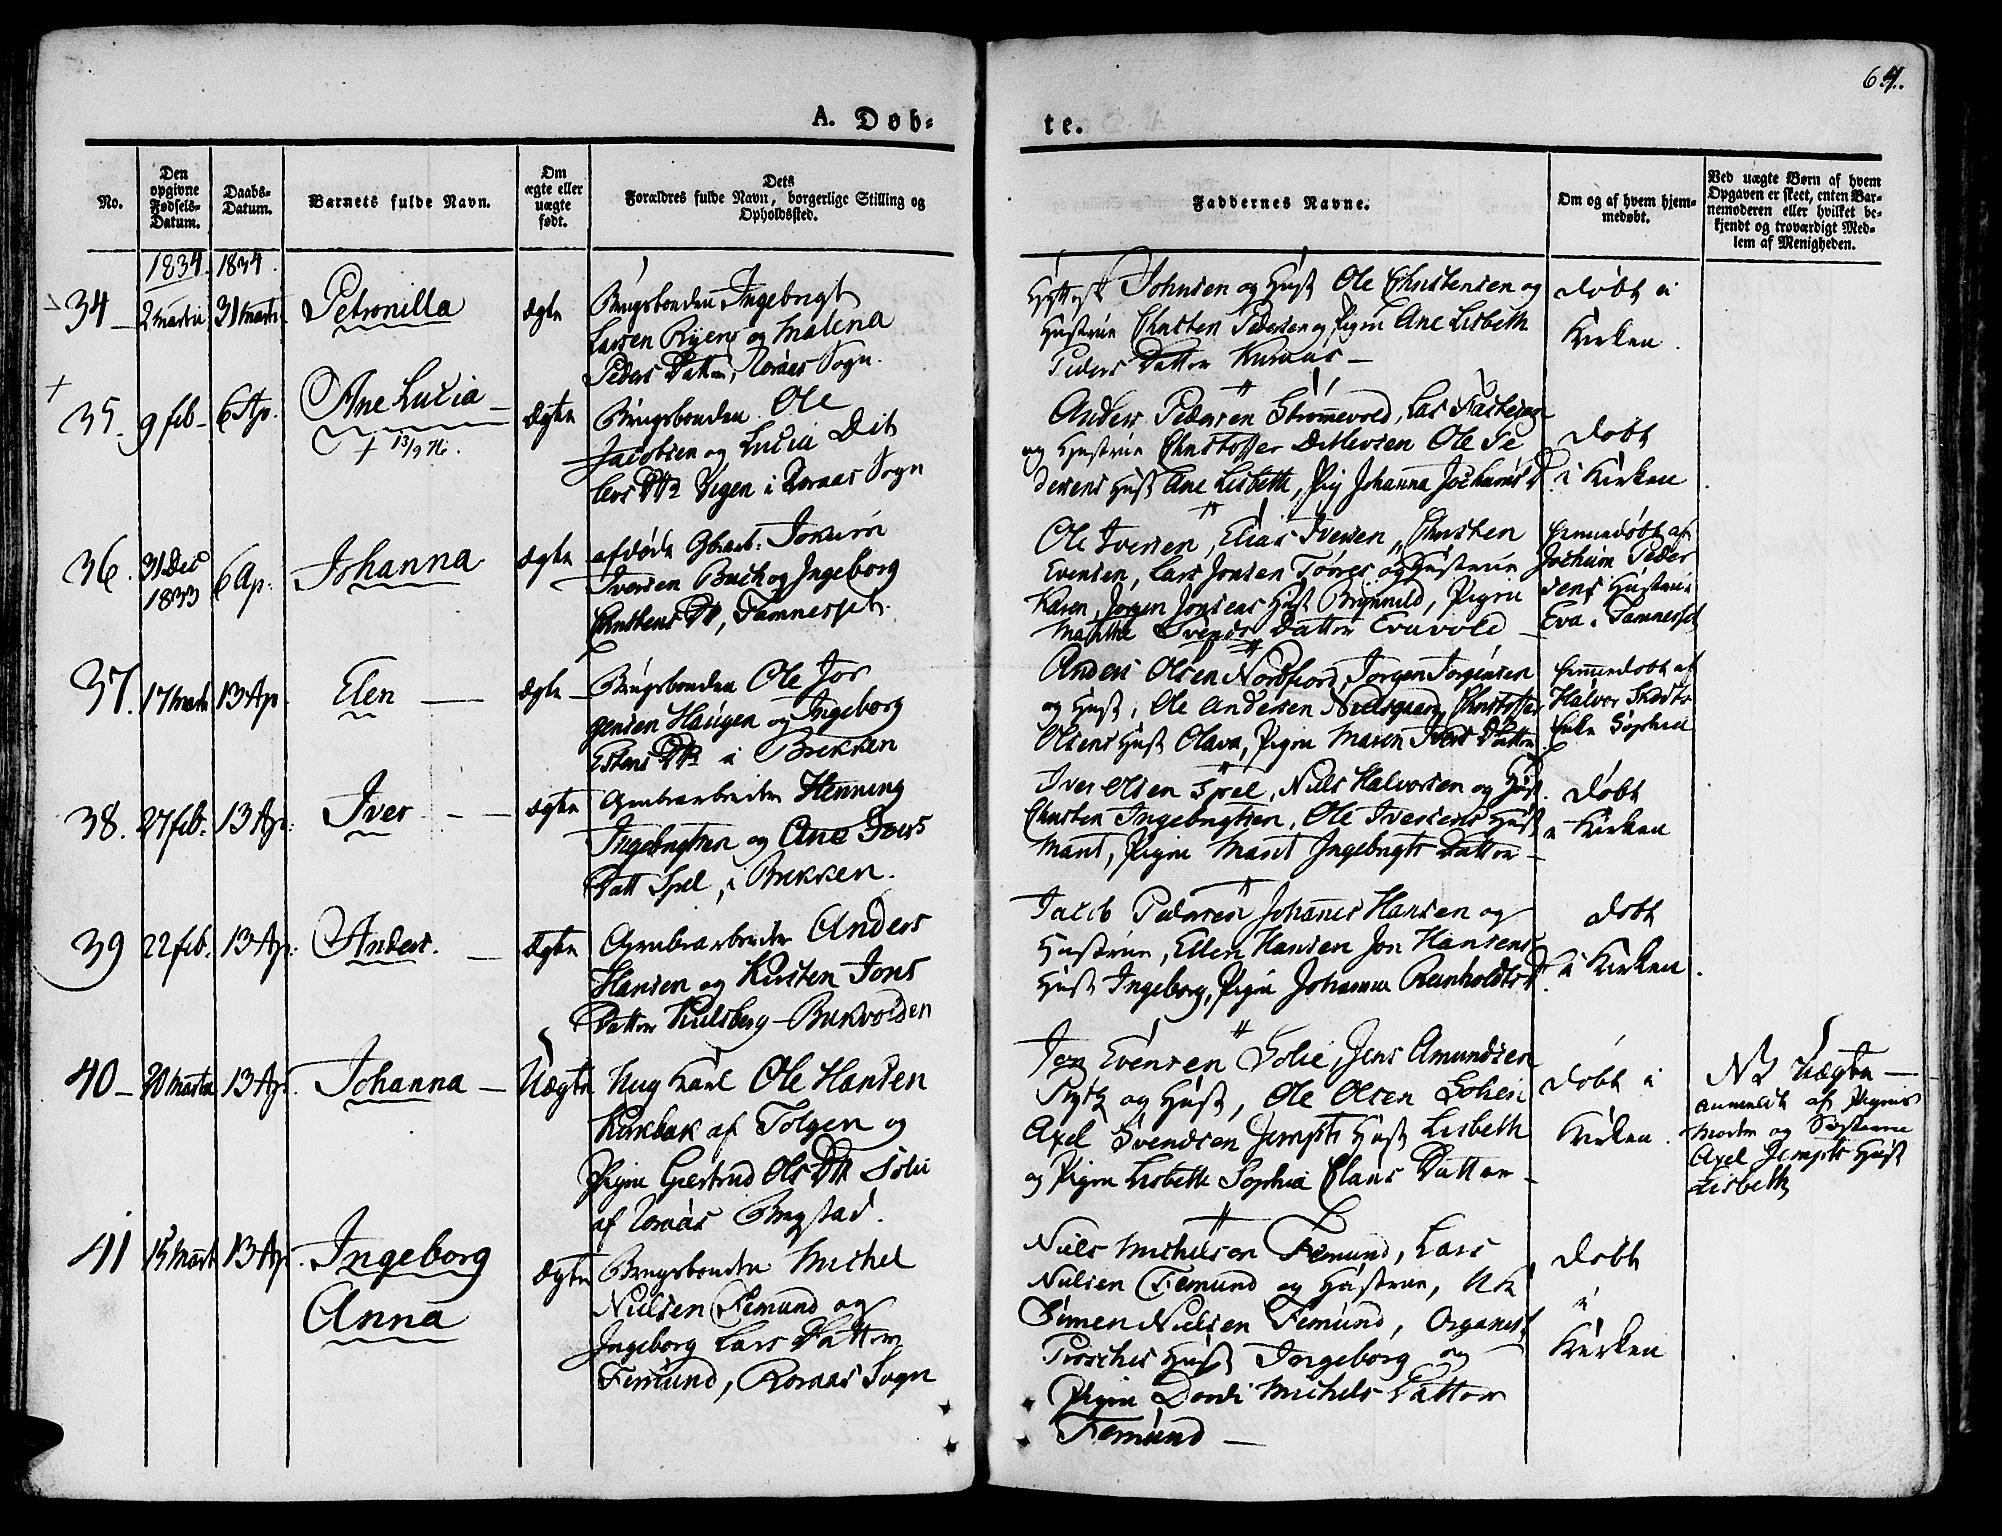 64.
A. Døb-
te.
No.
Den
opgivne
Fødsels-
Datum.
Daabs-
Datum.
Barnets fulde Navn.
Om
ægte eller
uægte
født.
Dets
Forældres fulde Navn, borgerlige Stilling og
Opholdssted.
Faddernes Navne.
Om og af hvem hjem-
medøbt.
Ved uægte Børn af hvem
Opgaven er skeet, enten Bar-
nemoderen eller hvilket be-
kjendt og troværdigt Med-
lem af Menigheden.
1834. 1834.
34 2 Martii 31 Martii Petronilla ægte
Brugsbonden Ingebrigt
Larsen Ryen og Malena
Peders Datter, Røraas Sogn.
Johnsen og Hust Ole Christensen og
Hustrue Christen Pedersen og Pigen Ane Lisbeth
Peders Datter Kuraas
døbt i
Kirken.
35. 9 feb 6 Ap. Ane Lucia ægte
+ 13/9 Mr.
Brugsbonden Ole
Jacobsen og Lucia Dit
levs Dtr Vegen i Røraas Sogn
Anders Pedersen Strømmevold, Lars
og Hustrue Christoffer Ditlevsen Ole Pe
dersens Hust Ane Lisbeth, Pig Johanna Jochums D.
døbt
i Kirken
36. 31 Dec
1833 6 Ap. Johanna ægte
afdøde Jochum
Iversen Buch og Ingeborg
Christens Dtr, Tamnesset.
Ole Iversen, Elias Iversen, Christen
Evensen, Lars Jonsen Torres og Hustrue
Karen, Jørgen Jonsens Hust Brynnild, Pigen
Marthe Svends Datter Evavold
hiemmedøbt af
Jochum Peder
sens Hustrue
Eva i Tamnesset
37. 17 Marti 13 Ap Elen ægte
Brugsbonden Ole Jør
gensen Haugen og Ingeborg
Estens Dtr i Brekken
Anders Olsen Nordfiord, Jørgen Jørgensen
og Hust, Ole Andersen Nielsgaard, Christoffer
Olsens Hust Olava, Pigen Maren Ivers Datter
hiemmedøbt af
Halvor
Sophia
38. 27 feb. 13 Ap. Iver ægte
Grubearbeider Henning
Ingebrigtsen og Ane Ivers
Datt Spel, i Brekken.
Iver Olsen Spel, Niels Halvorsen og Hust
Christen Ingebrigtsen, Ole Iversens Hust
Marit, Pigen Marit Ingebrigts Datter
døbt
i Kirken
39 22 feb. 13 Ap. Anders. ægte
Grubearbeider Anders
Hansen og Kirsten Jons
Datter Kuilsberg Brekvolden
Jacob Pedersen Johannes Hansen og
Hustrue, Ellen Hansen Jon Hansens
Hust Ingeborg, Pigen Johanna Reinholdts D.
døbt
i Kirken
40 20 Martii 13 Ap. Johanna Uægte
Ung Karl Ole Hansen
Kirkbak af Tolgen og
Pigen Giertrud Ols Dtr Solie
af Røraas Bergstad.
Jon Evensen Solie, Jens Amundsen
Rytz og Hust, Ole Olsen Solien
Axel Svendsen Jempts Hust Lisbeth
og Pigen Lisbeth Sophia Clans Datter
døbt i
Kirken.
NB Uægte
anmeldt af Pigens
Moder og Søsteren
Axel Jempts Hust
Lisbeth
41 15 Mart 13 Ap. Ingeborg
Anna ægte
Brugsbonden Michel
Nielsen Femund og
Ingeborg Lars Datter
Femund, Røraas Sogn
Niels Michelsen Femund, Lars
Nielsen Femund og Hustrue,
Simen Nielsen Femund, Organist
Prosches Hust Ingeborg og
Pigen Dordi Michels Datter
Femund
døbt
i
Kirken